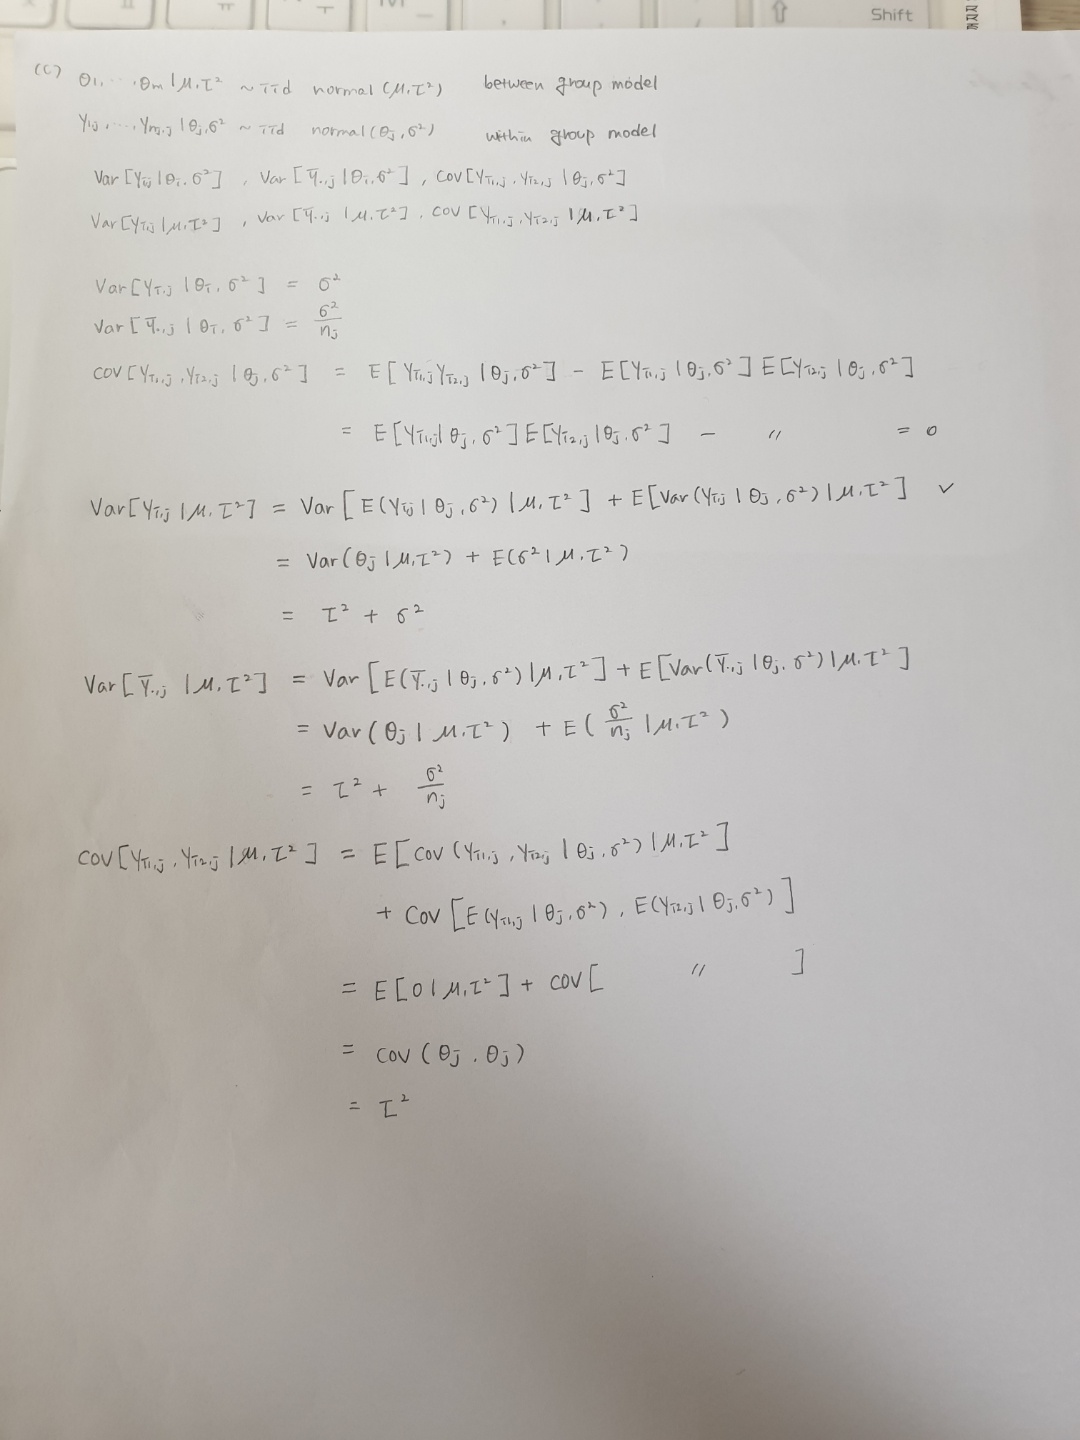 Shift
(c) θ1, ··· , θm | μ, τ² ~ iid normal (μ, τ²) between group model
Y1j, ···, Ynj,j | θj, σ² ~ iid normal (θj, σ²) within group model
Var [Yij | θi, σ²] , Var [Ȳ·,j | θi, σ²] , Cov [Yi1,j , Yi2,j | θj, σ²]
Var [Yi,j | μ, τ²] , Var [Ȳ·,j | μ, τ²] , Cov [Yi1,j , Yi2,j | μ, τ²]
Var [Yi,j | θi, σ²] = σ²
Var [Ȳ·,j | θi, σ²] = σ²/nj
Cov [Yi1,j , Yi2,j | θj, σ²] = E [Yi1,j Yi2,j | θj, σ²] - E [Yi1,j | θj, σ²] E [Yi2,j | θj, σ²]
= E [Yi1,j | θj, σ²] E [Yi2,j | θj, σ²] - 〃 = 0
Var [Yi,j | μ, τ²] = Var [E (Yij | θj, σ²) | μ, τ²] + E [Var (Yi,j | θj, σ²) | μ, τ²] ✓
= Var (θj | μ, τ²) + E (σ² | μ, τ²)
= τ² + σ²
Var [Ȳ·,j | μ, τ²] = Var [E (Ȳ·,j | θj, σ²) | μ, τ²] + E [Var (Ȳ·,j | θj, σ²) | μ, τ²]
= Var (θj | μ, τ²) + E (σ²/nj | μ, τ²)
= τ² + σ²/nj
Cov [Yi1,j , Yi2,j | μ, τ²] = E [Cov (Yi1,j , Yi2,j | θj, σ²) | μ, τ²]
+ Cov [E (Yi1,j | θj, σ²) , E (Yi2,j | θj, σ²)]
= E [0 | μ, τ²] + Cov [ 〃 ]
= Cov (θj , θj)
= τ²